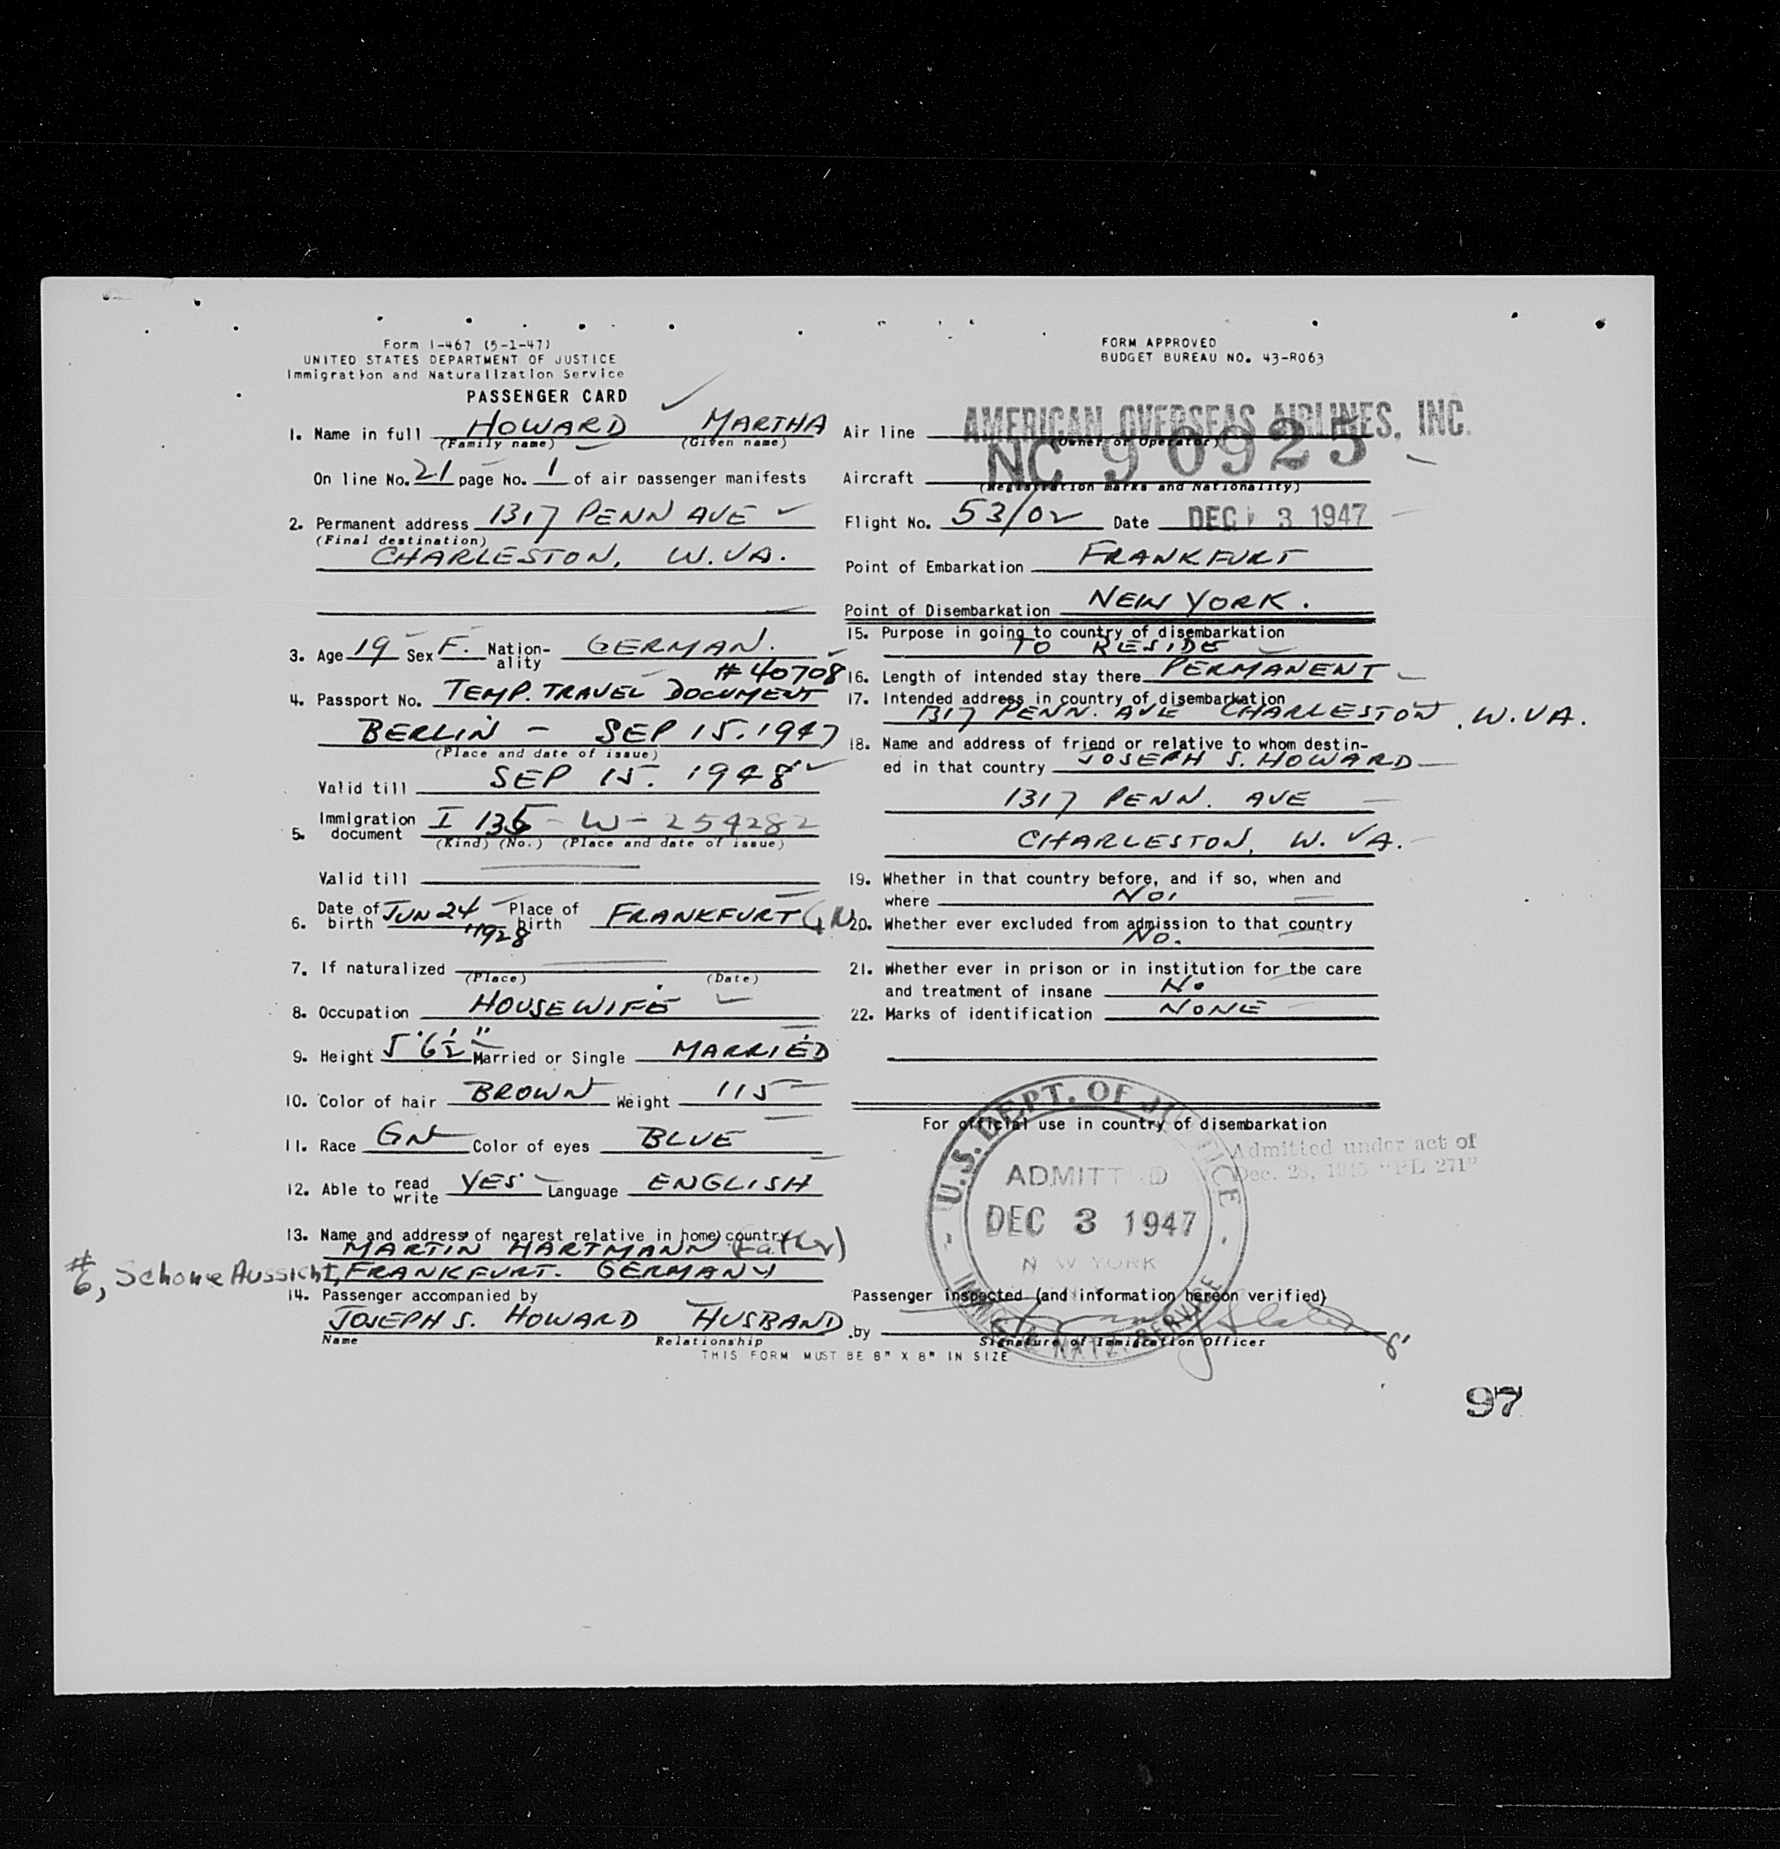 Form I-467 (5-1-47)
UNITED STATES DEPARTMENT OF JUSTICE
Immigration and Naturalization Service
PASSENGER CARD
FORM APPROVED
BUDGET BUREAU NO. 43-R063
1. Name in full HOWARD MARTHA
(Family name) (Given name)
On line No. 21 page No. 1 of air passenger manifests
2. Permanent address 1317 PENN AVE
(Final destination)
CHARLESTON, W.VA.
3. Age 19 Sex F. Nation-ality GERMAN.
# 40708
4. Passport No. TEMP. TRAVEL DOCUMENT
BERLIN - SEP 15. 1947
(Place and date of issue)
Valid till SEP 15. 1948
5. Immigration document I 135 - W - 254282
(Kind) (No.) (Place and date of issue)
Valid till
6. Date of birth JUN 24 1928 Place of birth FRANKFURT GN
7. If naturalized
(Place) (Date)
8. Occupation HOUSEWIFE
9. Height 5' 6½" Married or Single MARRIED
10. Color of hair BROWN Weight 115
11. Race GN Color of eyes BLUE
12. Able to read write YES Language ENGLISH
13. Name and address of nearest relative in home country
MARTIN HARTMANN (Father)
#6, Schone Aussicht, FRANKFURT. GERMANY
14. Passenger accompanied by
JOSEPH S. HOWARD HUSBAND
Name Relationship
THIS FORM MUST BE 8" X 8" IN SIZE
Air line AMERICAN OVERSEAS AIRLINES, INC.
(Owner or Operator)
Aircraft NC 90925
(Registration marks and Nationality)
Flight No. 53/02 Date DEC 3 1947
Point of Embarkation FRANKFURT
Point of Disembarkation NEW YORK.
15. Purpose in going to country of disembarkation
TO RESIDE
16. Length of intended stay there PERMANENT
17. Intended address in country of disembarkation
1317 PENN. AVE CHARLESTON, W.VA.
18. Name and address of friend or relative to whom destin-
ed in that country JOSEPH S. HOWARD
1317 PENN. AVE
CHARLESTON, W. VA.
19. Whether in that country before, and if so, when and
where NO.
20. Whether ever excluded from admission to that country
NO.
21. Whether ever in prison or in institution for the care
and treatment of insane No
22. Marks of identification NONE
For official use in country of disembarkation
Admitted under act of
Dec. 28, 1945 "PL 271"
U.S. DEPT. OF JUSTICE
ADMITTED
DEC 3 1947
NEW YORK
IMMIG. & NATZ. SERVICE
Passenger inspected (and information hereon verified)
by
Signature of Immigration Officer
97